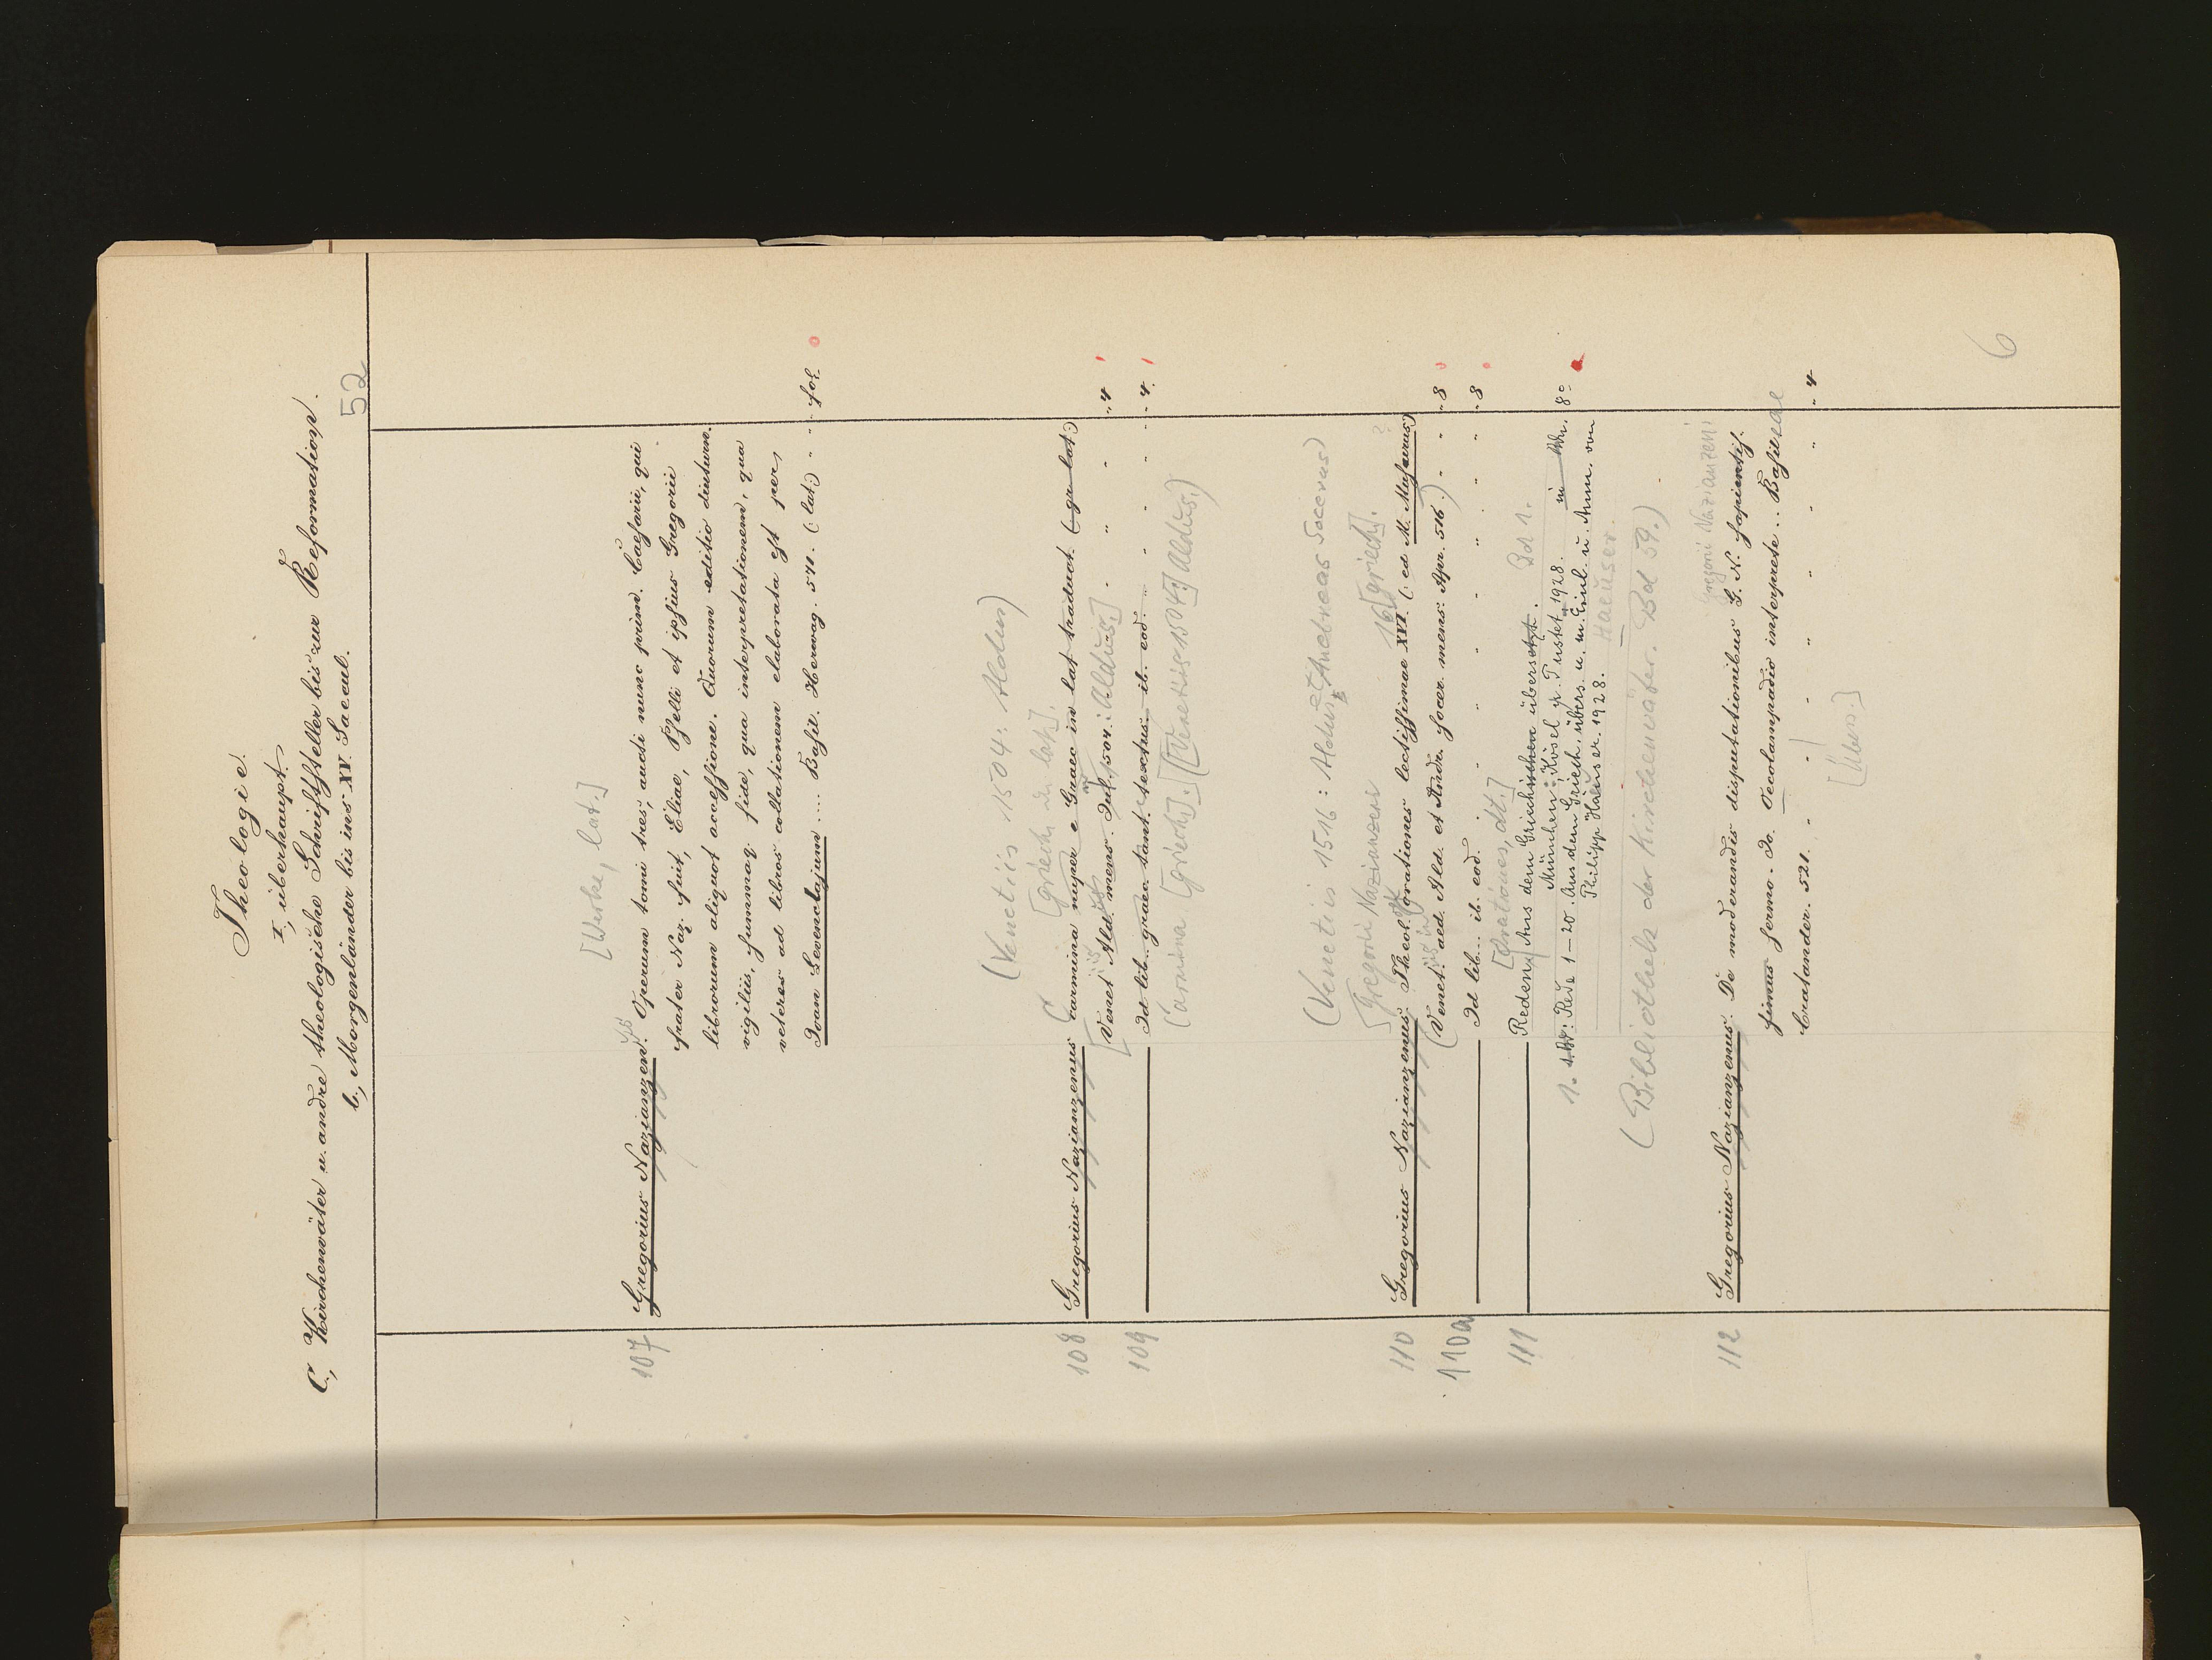 Theologie.
I, überhaupt.
C, Kirchenväter u. andre theologische Schriftsteller bis zur Reformation.
b, Morgenländer bis ins XV. Saecul.
52
[Werke, lat.]
107 Gregorius Nazianzen. Operum tomi tres, aucti nunc prim. Caesarii, qui
frater Naz. fuit, Eliae, Pselli et ipsius Gregorii
librorum aliquot accessione. Quorum editio diuturn.
vigiliis, summaq. fide, qua interpretationem, qua
veteres ad libros collationem elaborata est per
Joan Levenclajum ... Basil. Hervag. 571. (lat.) - - fol.
(Venetiis 1504: Aldus)
[griech. u. lat.].
108 Gregorius Nazianzenus carmina nuper e Graec in lat traduct. (gr lat.)
Venet Ald. mens. Jul. 1504. : Aldus.] - - - 4
109 Id lib... graec. tant. textus. ib. eod. - - - - 4.
Carmina [griech]. [(Venetiis 1504:] Aldus.)
(Venetiis 1516: Aldus et Andreas Socerus)
Gregorii Nazianzeni 16 [griech].
110 Gregorius Nazianzenus. Theol. orationes lectissimae XVI. (: ed M. Musurus)
(Venet. aed. Ald. et Andr. Socer. mens. Apr. 516.) - - - 8
110a Id lib... ib. eod. - - - - - - - 8
[Orationes, dt.]
111 Reden, Aus dem Griechischen übersetzt. Bd 1.
München: Kösel u. Pustet 1928. in Abt. 8°
1. Abt: Rede 1-20. Aus dem Griech. übers. u. m. Einl. u. Anm. von
Philipp Haeuser. 1928. Haeuser.
(Bibliothek der Kirchenväter. Bd 59.)
Gregorii Nazianzeni
112 Gregorius Nazianzenus. De moderandis disputationibus G. N. sapientis-
simus sermo. Jo. Oecolampadio interprete... Basileae
Cratander. 521. - - - - - - - 4
[Übers.]
6